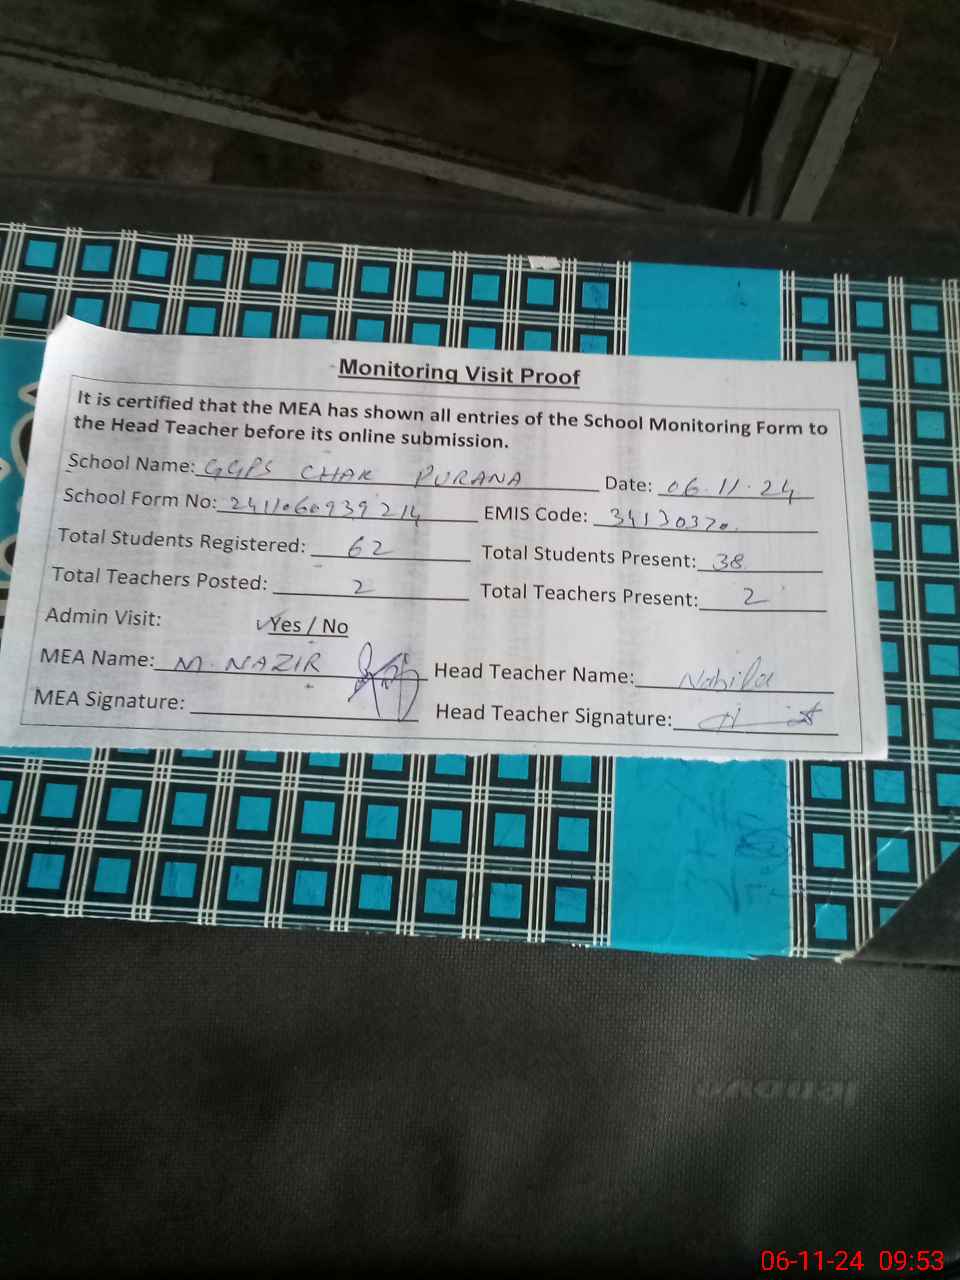 Monitoring Visit Proof
It is certified that the MEA has shown all entries of the School Monitoring Form to
the Head Teacher before its online submission.
School Name: GGPS CHAK PURANA Date: 06.11.24
School Form No: 2411060939214 EMIS Code: 34130370
Total Students Registered: 62 Total Students Present: 38
Total Teachers Posted: 2 Total Teachers Present: 2
Admin Visit: ✓Yes / No
MEA Name: M. NAZIR Head Teacher Name: Nabila
MEA Signature: Head Teacher Signature:
06-11-24 09:53